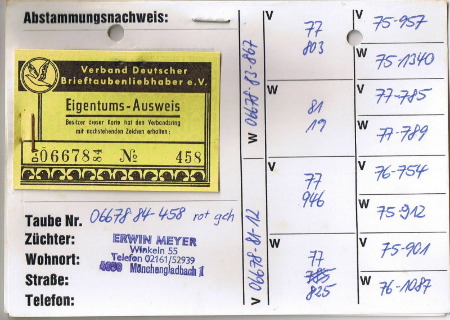 Abstammungsnachweis:
Verband Deutscher
Brieftaubenliebhaber e.V.
Eigentums-Ausweis
Besitzer dieser Karte hat den Verbandsring
mit nachstehenden Zeichen erhalten:
06678 84 No 458
Taube Nr. 06678 84-458 rot geh
Züchter: ERWIN MEYER
Winkeln 55
Wohnort: Telefon 02161/52939
4050 Mönchengladbach 1
Straße:
Telefon:
W 06678-83-867
V 06678-81-12
V 77
803
W 81
19
V 77
946
W 77
785
825
V 75-957
W 75-1340
V 77-785
W 77-789
V 76-754
W 75-912
V 75-901
W 76-1087